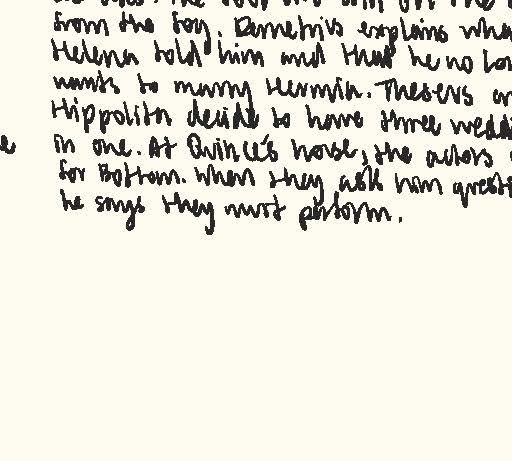 from the fog. Demetrius explains what
Helena told him and that he no lon
wants to marry Hermia. Theseus an
Hippolita decide to have three weddi
in one. At Quince's house, the actors
for Bottom. When they ask him questi
he says they must perform.